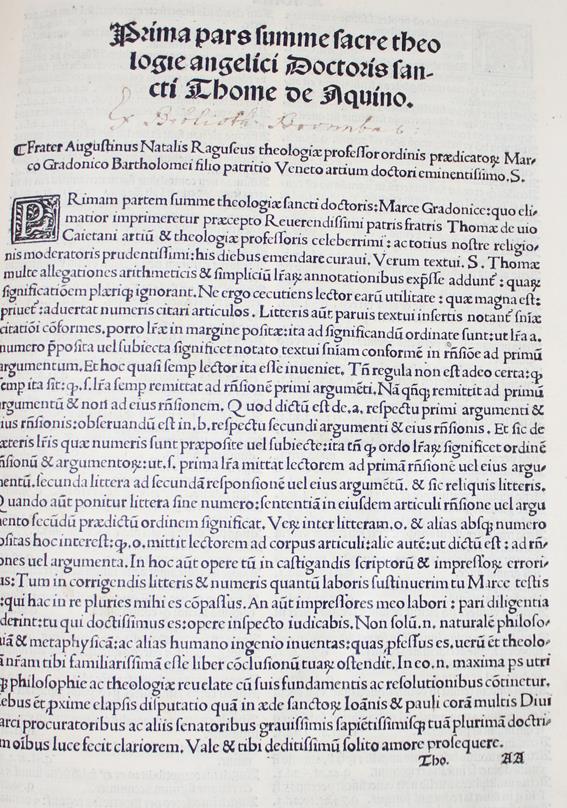 Prima pars summe sacre theo
logie angelici Doctoris san-
cti Thome de Aquino.
Ex Biblioth.
Frater Augustinus Natalis Raguseus theologiæ professor ordinis prædicatoꝝ Mar-
co Gradonico Bartholomei filio patritio Veneto artium doctori eminentissimo. S.
PRimam partem summe theologiæ sancti doctoris: Marce Gradonice: quo eli-
matior imprimeretur præcepto Reuerendissimi patris fratris Thomæ de uio
Caietani artiū & theologiæ professoris celeberrimi: ac totius nostre religio-
nis moderatoris prudentissimi: his diebus emendare curaui. Verum textui. S. Thomæ
multe allegationes arithmeticis & simpliciū lr̄aꝝ annotationibus exp̄sse addunt̄: quaꝝ
significatiōem plæriqꝫ ignorant. Ne ergo cecutiens lector earū utilitate: quæ magna est:
priuet̄: aduertat numeris citari articulos. Litteris aūt paruis textui insertis notant̄ sniæ
citatiōi cōformes. porro lr̄æ in margine positæ: ita ad significandū ordinate sunt: ut lr̄a a.
numero p̄posita uel subiecta significet notato textui sniam conformē in rn̄siōe ad primū
argumentum. Et hoc quasi semp lector ita esse inueniet. Tn̄ regula non est adeo certa: ꝙ
semp ita sit: ꝙ. s. lr̄a semp remittat ad rn̄sionē primi argumēti. Nā qn̄qꝫ remittit ad primū
argumentū & non ad eius rn̄sionem. Quod dictū est de. a. respectu primi argumenti &
eius rn̄sionis: obseruandū est in. b. respectu secundi argumenti & eius rn̄sionis. Et sic de
cæteris lr̄is quæ numeris sunt præpositæ uel subiectæ: ita tn̄ ꝙ ordo lr̄aꝝ significet ordinē
rn̄sionū & argumentoꝝ: ut. s. prima lr̄a mittat lectorem ad primā rn̄sionē uel eius argu-
mentū. secunda littera ad secundā responsionē uel eius argumētū. & sic reliquis litteris.
Quando aūt ponitur littera sine numero: sententiā in eiusdem articuli rn̄sione uel argu
mento secūdū prædictū ordinem significat. Veꝝ inter litteram. o. & alias absqꝫ numero
positas hoc interest: ꝙ. o. mittit lectorem ad corpus articuli: alie autē: ut dictū est: ad rn̄-
ones uel argumenta. In hoc aūt opere tū in castigandis scriptorū & impressoꝝ errori-
us: Tum in corrigendis litteris & numeris quantū laboris sustinuerim tu Marce testis
: qui hac in re pluries mihi es cōpassus. An aūt impressores meo labori: pari diligentia
derint: tu qui doctissimus es: opere inspecto iudicabis. Non solū. n. naturalē philoso-
iā & metaphysicā: ac alias humano ingenio inuentas: quas pfessus es. uerū et theolo-
ā nr̄am tibi familiarissimā esse liber cōclusionū tuaꝝ ostendit. In eo. n. maxima ps utri
qꝫ philosophie ac theologiæ reuelate cū suis fundamentis ac resolutionibus cōtinetur.
ebus et pxime elapsis disputatio quā in æde sanctoꝝ Ioānis & pauli corā multis Diui
arci procuratoribus ac aliis senatoribus grauissimis sapiētissimisqꝫ tuā plurimā doctri-
m oībus luce fecit clariorem. Vale & tibi deditissimū solito amore prosequere.
Tho. AA